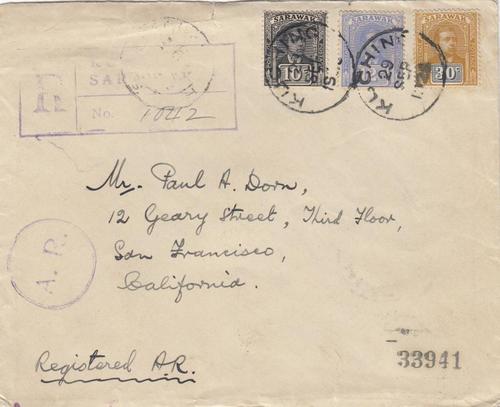 SARAWAK
10c
SARAWAK
12c
SARAWAK
KUCHING
KUCHING
29
SEP
R
SARAWAK
No. 1042
Mr. Paul A. Dorn,
12 Geary Street, Third Floor,
San Francisco,
California.
A. R.
Registered A.R.
33941